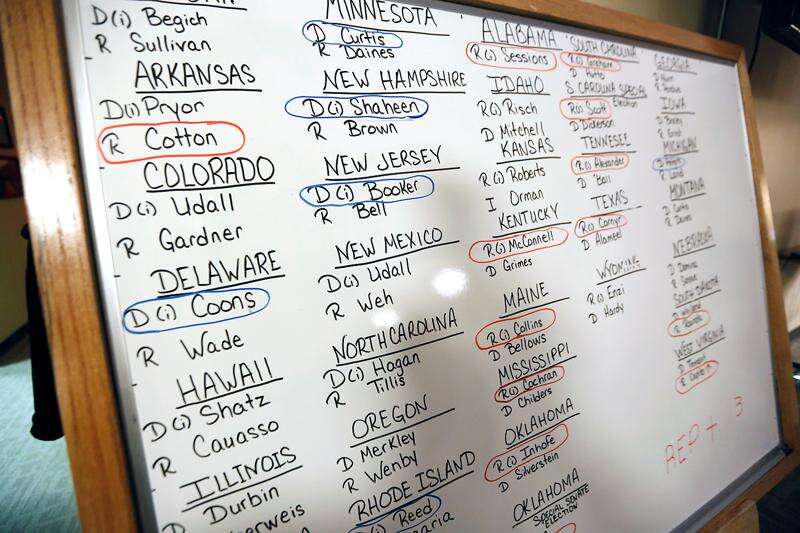 D(i) Begich
R Sullivan
ARKANSAS
D(i) Pryor
R Cotton
COLORADO
D(i) Udall
R Gardner
DELAWARE
D(i) Coons
R Wade
HAWAII
D(i) Shatz
R Cavasso
ILLINOIS
D Durbin
MINNESOTA
D Curtis
R Daines
NEW HAMPSHIRE
D(i) Shaheen
R Brown
NEW JERSEY
D(i) Booker
R Bell
NEW MEXICO
D(i) Udall
R Weh
NORTH CAROLINA
D(i) Hagan
R Tillis
OREGON
D Merkley
R Wenby
RHODE ISLAND
D(i) Reed
ALABAMA
R(i) Sessions
IDAHO
R(i) Risch
D Mitchell
KANSAS
R(i) Roberts
I Orman
KENTUCKY
R(i) McConnell
D Grimes
MAINE
R(i) Collins
D Bellows
MISSISSIPPI
R(i) Cochran
D Childers
OKLAHOMA
R(i) Inhofe
D Silverstein
OKLAHOMA
SPECIAL SENATE
ELECTION
SOUTH CAROLINA
R(i) Graham
D Hutto
S CAROLINA SPECIAL
Election
R(i) Scott
D Dickerson
TENNESSEE
R(i) Alexander
D Ball
TEXAS
R(i) Cornyn
D Alameel
WYOMING
R(i) Enzi
D Hardy
GEORGIA
D Nunn
R Perdue
IOWA
D Braley
R Ernst
MICHIGAN
D Peters
R Land
MONTANA
D Curtis
R Daines
NEBRASKA
D Domina
R Sasse
SOUTH DAKOTA
D
R Rounds
WEST VIRGINIA
D Tennant
R Capito
REP + 3